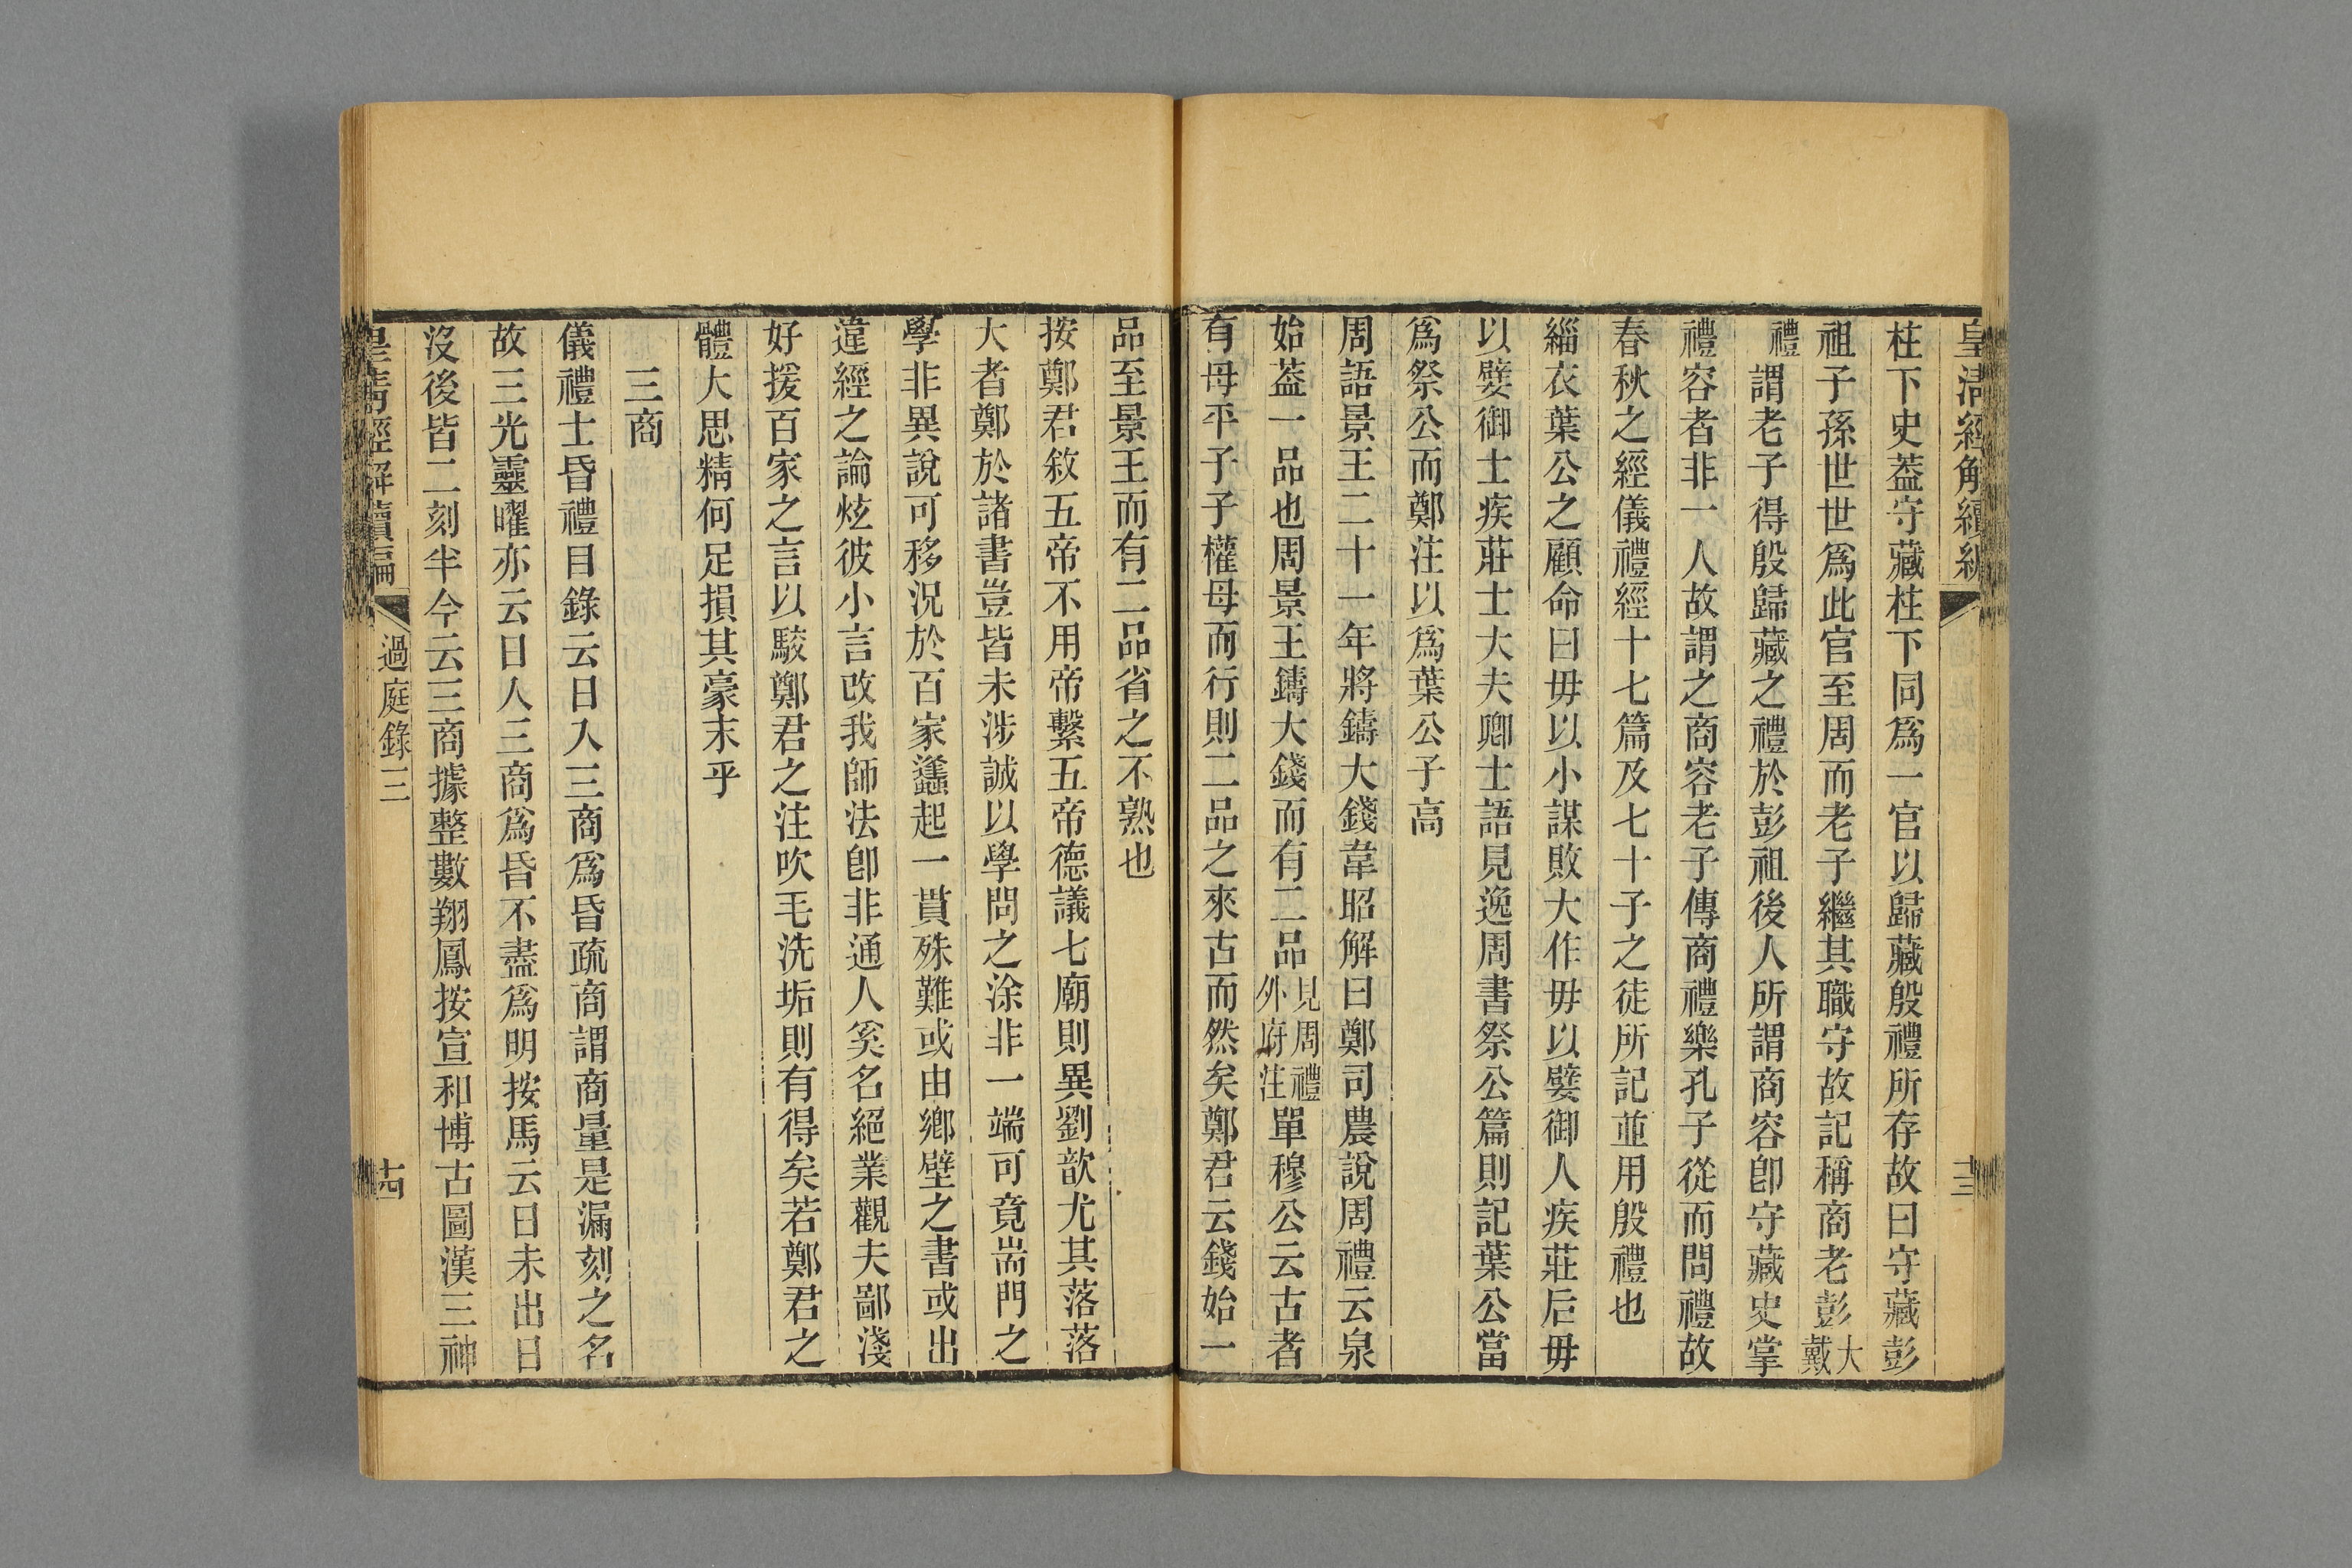 皇清經解續編
十三
柱下史葢守藏柱下同爲一官以歸藏殷禮所存故曰守藏彭
祖子孫世世爲此官至周而老子繼其職守故記稱商老彭大戴
禮謂老子得殷歸藏之禮於彭祖後人所謂商容卽守藏史掌
禮容者非一人故謂之商容老子傳商禮樂孔子從而問禮故
春秋之經儀禮經十七篇及七十子之徒所記並用殷禮也
緇衣葉公之顧命曰毋以小謀敗大作毋以嬖御人疾莊后毋
以嬖御士疾莊士大夫卿士語見逸周書祭公篇則記葉公當
爲祭公而鄭注以爲葉公子高
周語景王二十一年將鑄大錢韋昭解曰鄭司農說周禮云泉
始葢一品也周景王鑄大錢而有二品見周禮外府注單穆公云古者
有母平子子權母而行則二品之來古而然矣鄭君云錢始一
品至景王而有二品省之不熟也
按鄭君敘五帝不用帝繫五帝德議七廟則異劉歆尤其落落
大者鄭於諸書豈皆未涉誠以學問之涂非一端可竟耑門之
學非異說可移況於百家蠭起一貫殊難或由鄉壁之書或出
違經之論炫彼小言改我師法卽非通人奚名絕業觀夫鄙淺
好援百家之言以駮鄭君之注吹毛洗垢則有得矣若鄭君之
體大思精何足損其豪末乎
三商
儀禮士昏禮目錄云日入三商爲昏疏商謂商量是漏刻之名
故三光靈曜亦云日人三商爲昏不盡爲明按馬云日未出日
沒後皆二刻半今云三商據整數翔鳳按宣和博古圖漢三神
皇清經解續編
過庭錄三
十四